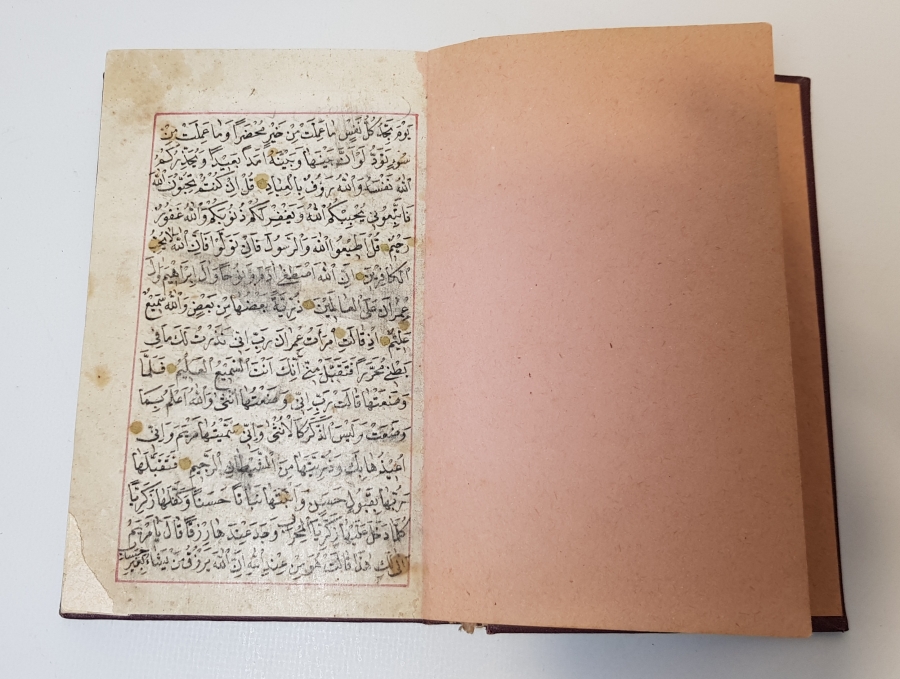 يَوْمَ تَجِدُ كُلُّ نَفْسٍ مَا عَمِلَتْ مِنْ خَيْرٍ مُحْضَرًا وَمَا عَمِلَتْ مِنْ
سُوءٍ تَوَدُّ لَوْ اَنَّ بَيْنَهَا وَبَيْنَهُ اَمَدًا بَعِيدًا وَيُحَذِّرُكُمُ
اللّٰهُ نَفْسَهُ وَاللّٰهُ رَؤُفٌ بِالْعِبَادِ قُلْ اِنْ كُنْتُمْ تُحِبُّونَ اللّٰهَ
فَاتَّبِعُونِي يُحْبِبْكُمُ اللّٰهُ وَيَغْفِرْ لَكُمْ ذُنُوبَكُمْ وَاللّٰهُ غَفُورٌ
رَحِيمٌ قُلْ اَطِيعُوا اللّٰهَ وَالرَّسُولَ فَاِنْ تَوَلَّوْا فَاِنَّ اللّٰهَ لَا يُحِبُّ
الْكَافِرِينَ اِنَّ اللّٰهَ اصْطَفٰى اٰدَمَ وَنُوحًا وَاٰلَ اِبْرَاهِيمَ وَاٰلَ
عِمْرَانَ عَلَى الْعَالَمِينَ ذُرِّيَّةً بَعْضُهَا مِنْ بَعْضٍ وَاللّٰهُ سَمِيعٌ
عَلِيمٌ اِذْ قَالَتِ امْرَاَتُ عِمْرَانَ رَبِّ اِنِّي نَذَرْتُ لَكَ مَا فِي
بَطْنِي مُحَرَّرًا فَتَقَبَّلْ مِنِّي اِنَّكَ اَنْتَ السَّمِيعُ الْعَلِيمُ فَلَمَّا
وَضَعَتْهَا قَالَتْ رَبِّ اِنِّي وَضَعْتُهَا اُنْثٰى وَاللّٰهُ اَعْلَمُ بِمَا
وَضَعَتْ وَلَيْسَ الذَّكَرُ كَالْاُنْثٰى وَاِنِّي سَمَّيْتُهَا مَرْيَمَ وَاِنِّي
اُعِيذُهَا بِكَ وَذُرِّيَّتَهَا مِنَ الشَّيْطَانِ الرَّجِيمِ فَتَقَبَّلَهَا
رَبُّهَا بِقَبُولٍ حَسَنٍ وَاَنْبَتَهَا نَبَاتًا حَسَنًا وَكَفَّلَهَا زَكَرِيَّا
كُلَّمَا دَخَلَ عَلَيْهَا زَكَرِيَّا الْمِحْرَابَ وَجَدَ عِنْدَهَا رِزْقًا قَالَ يَا مَرْيَمُ
اَنّٰى لَكِ هٰذَا قَالَتْ هُوَ مِنْ عِنْدِ اللّٰهِ اِنَّ اللّٰهَ يَرْزُقُ مَنْ يَشَاءُ بِغَيْرِ حِسَابٍ